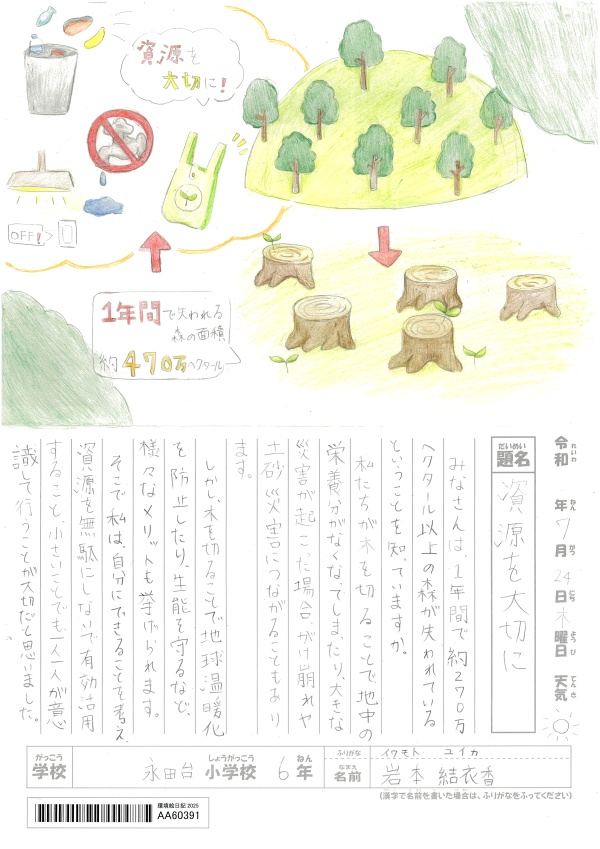 資源を
大切に!
OFF!
1年間で失われる
森の面積
約470万ヘクタール
令和 年7月24日木曜日 天気
れいわ ねん がつ にち ようび てんき
だいめい
題名
資源を大切に
みなさんは、1年間で約270万
ヘクタール以上の森が失われている
ということを知っていますか。
私たちが木を切ることで地中の
栄養分がなくなってしまったり、大きな
災害が起こった場合、がけ崩れや
土砂災害につながることもあり
ます。
しかし、木を切ることで地球温暖化
を防止したり、生能を守るなど、
様々なメリットも挙げられます。
そこで私は、自分にできることを考え、
資源を無駄にしないで有効活用
すること、小さいことでも一人一人が意
識して行うことが大切だと思いました。
がっこう
学校
永田台
しょうがっこう
小学校
6
ねん
年
ふりがな
イワモト ユイカ
なまえ
名前
岩本 結衣香
(漢字で名前を書いた場合は、ふりがなをふってください)
環境絵日記2025
AA60391